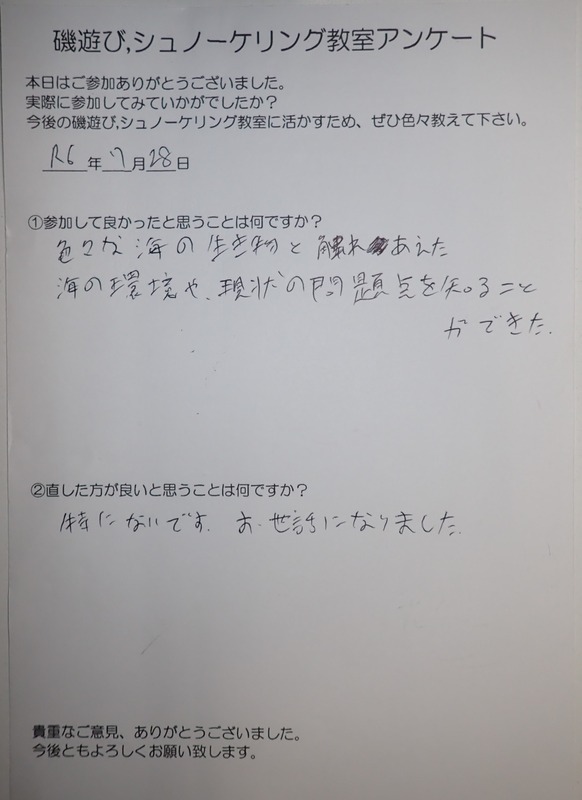 磯遊び,シュノーケリング教室アンケート
本日はご参加ありがとうございました。
実際に参加してみていかがでしたか？
今後の磯遊び,シュノーケリング教室に活かすため、ぜひ色々教えて下さい。
R6年7月28日
①参加して良かったと思うことは何ですか？
色々な海の生き物と触れあえた
海の環境や、現状の問題点を知ること
ができた.
②直した方が良いと思うことは何ですか？
特にないです. お世話になりました.
貴重なご意見、ありがとうございました。
今後ともよろしくお願い致します。